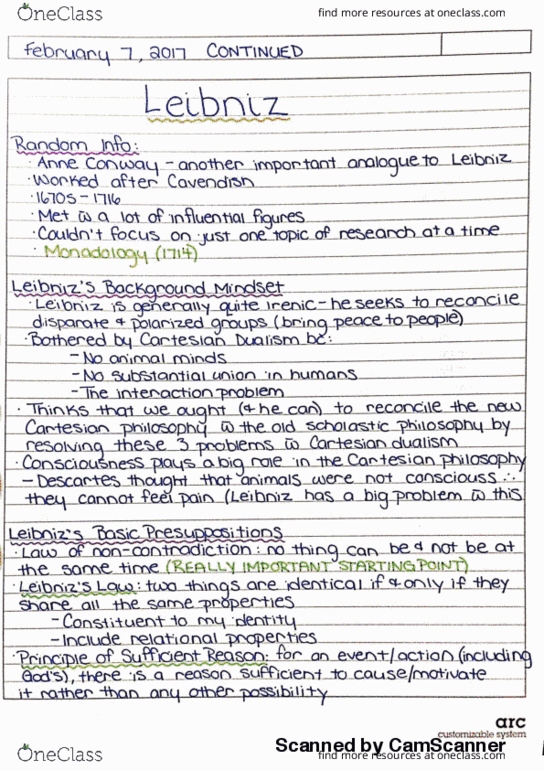 OneClass
find more resources at oneclass.com
february 7, 2017 CONTINUED
Leibniz
Random Info:
· Anne Conway - another important analogue to Leibniz
· Worked after Cavendish
· 1670s - 1716
· Met w a lot of influential figures
· Couldn't focus on just one topic of research at a time
· Monadology (1714)
Leibniz's Background Mindset
· Leibniz is generally quite irenic - he seeks to reconcile
disparate & polarized groups (bring peace to people)
· Bothered by Cartesian Dualism bc:
- No animal minds
- No substantial union in humans
- The interaction problem
· Thinks that we ought (& he can) to reconcile the new
Cartesian philosophy w the old scholastic philosophy by
resolving these 3 problems w Cartesian dualism
· Consciousness plays a big role in the Cartesian philosophy
- Descartes thought that animals were not conscious ∴
they cannot feel pain (Leibniz has a big problem w this
Leibniz's Basic Presuppositions
· Law of non-contradiction: no thing can be & not be at
the same time (REALLY IMPORTANT STARTING POINT)
· Leibniz's Law: two things are identical if & only if they
share all the same properties
- Constituent to my identity
- Include relational properties
· Principle of Sufficient Reason: for an event/action (including
God's), there is a reason sufficient to cause/motivate
it rather than any other possibility
arc
customizable system
Scanned by CamScanner
OneClass
find more resources at oneclass.com